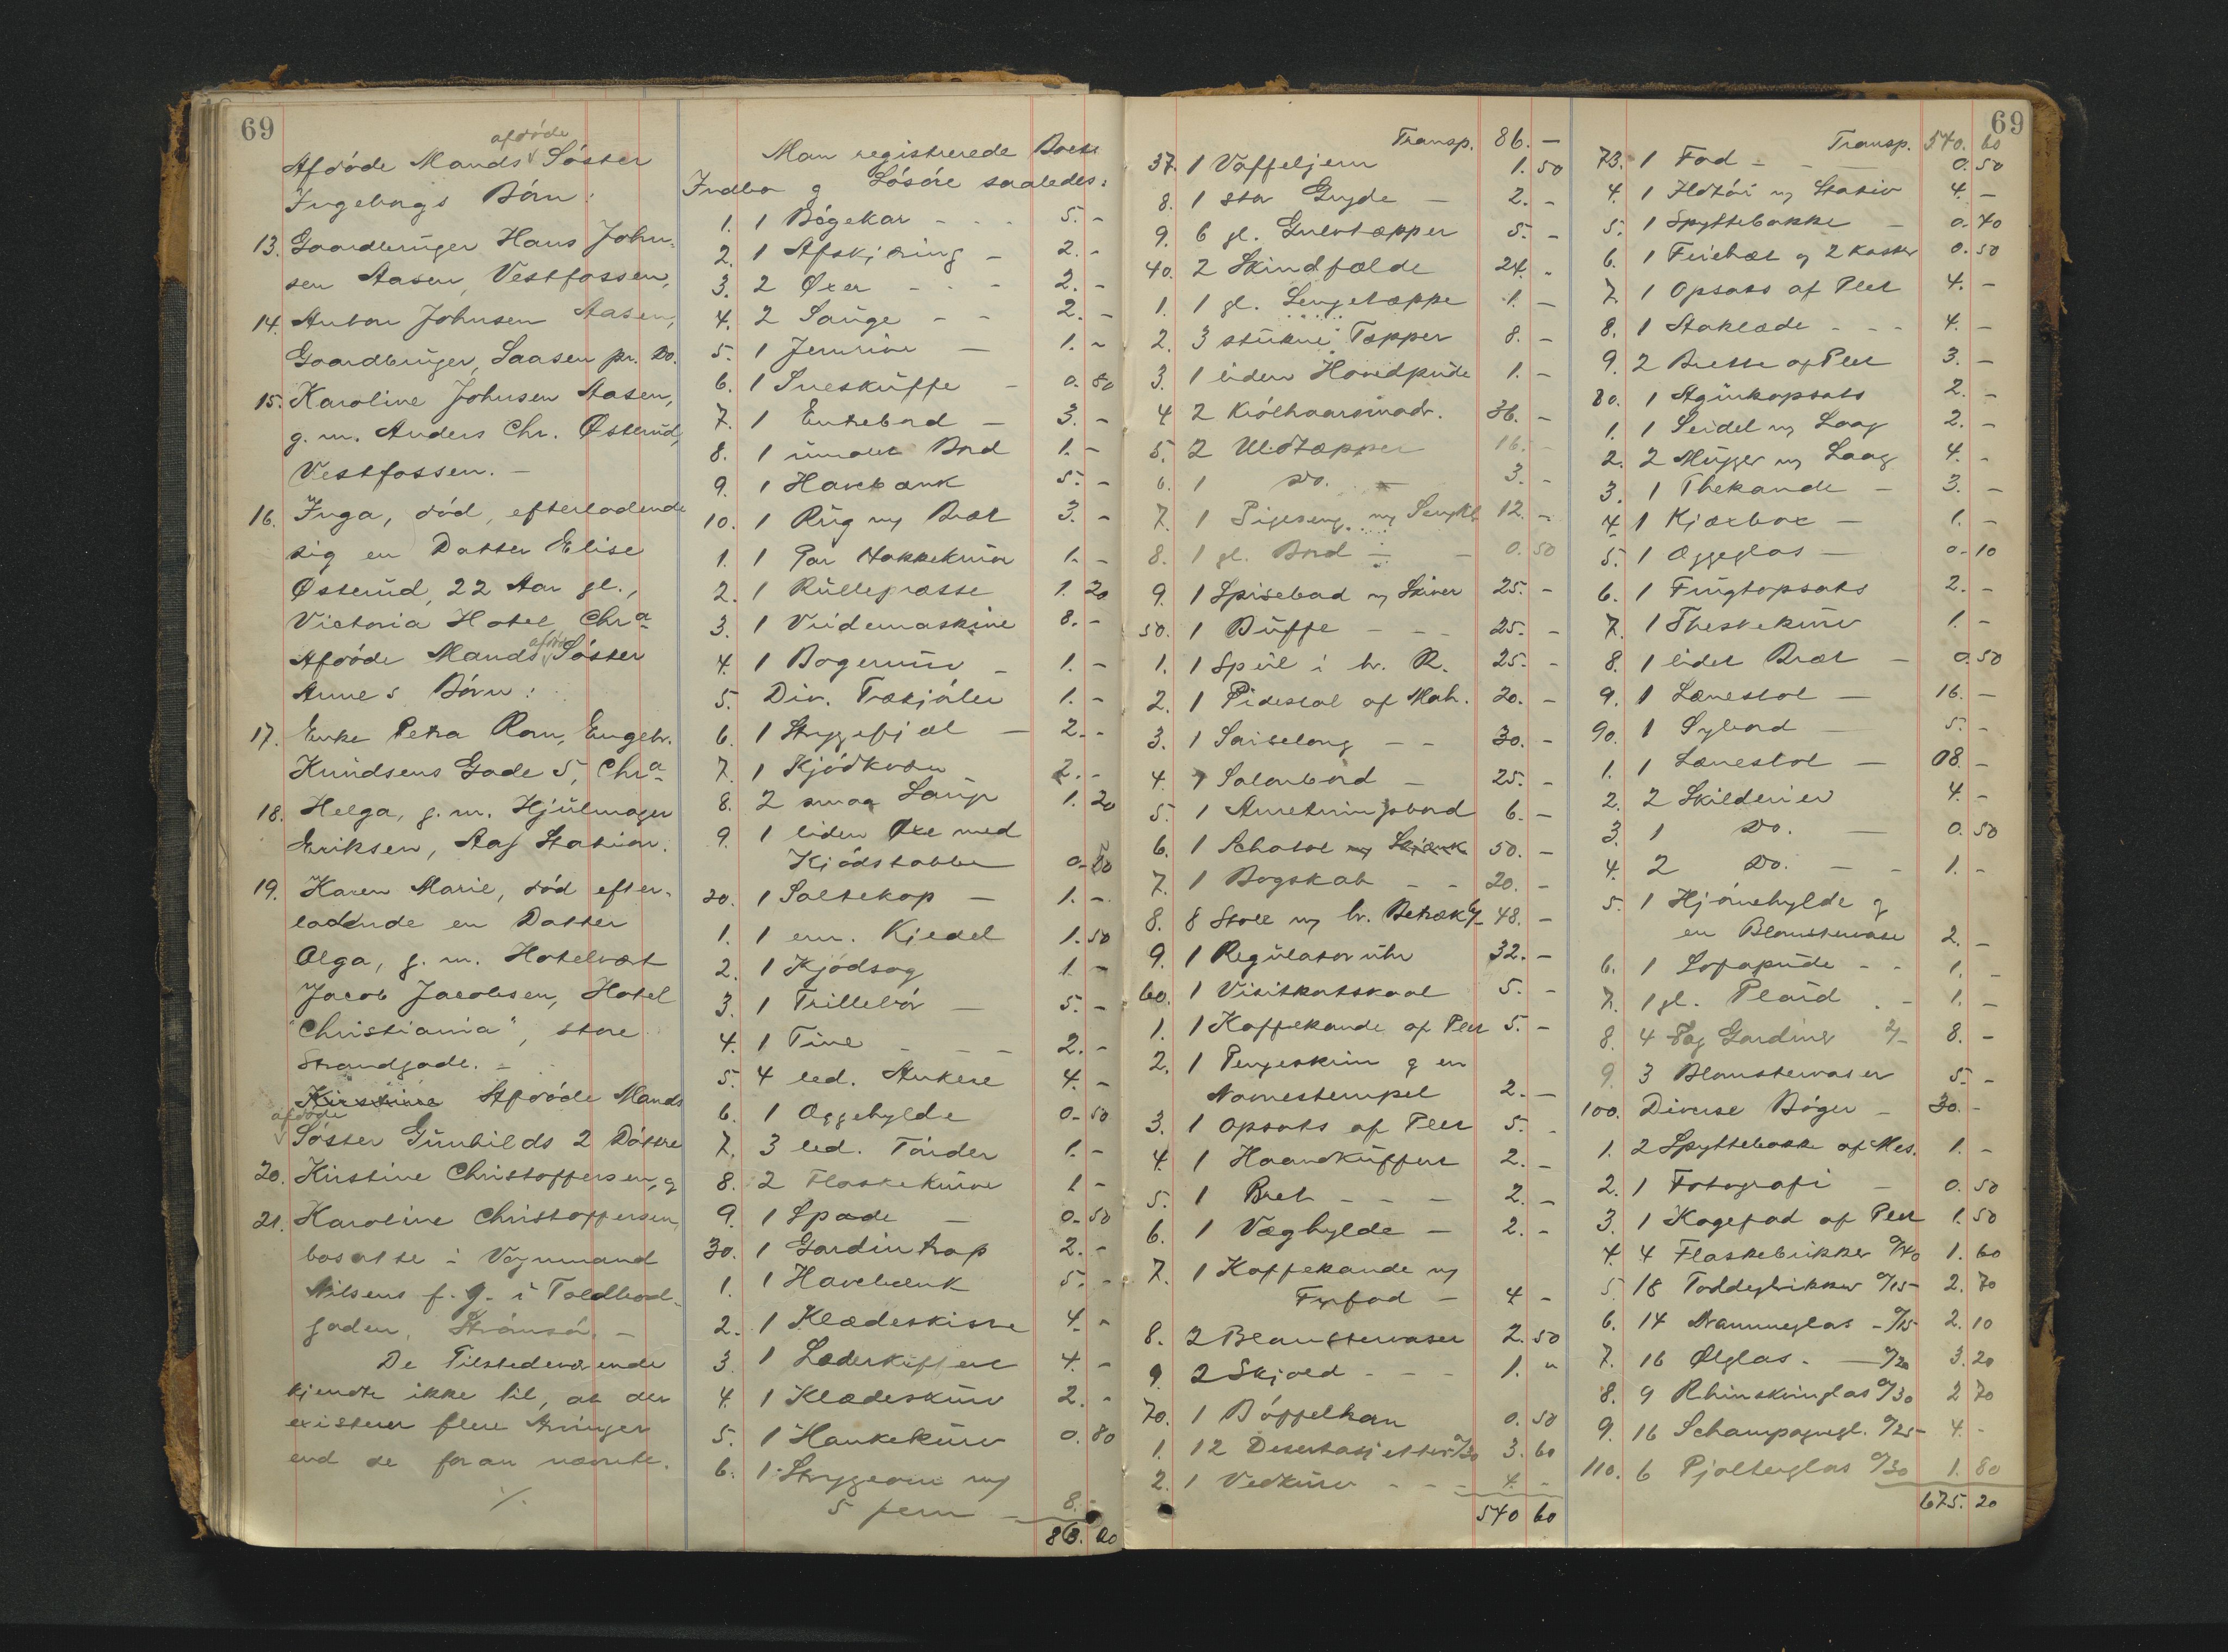 69
afdöde
Afdöde Mands Söster
Ingeborgs Börn:
13. Gaardbruger Hans John-
sen Aasen, Vestfossen,
14. Anton Johnsen Aasen,
Gaardbruger, Saasen pr. Do.
15. Karoline Johnsen Aasen,
g. m. Anders Chr. Østerud,
Vestfossen. –
16. Inga, död, efterladende
sig en Datter Elise
Østerud, 22 Aar gl.,
Victoria Hotel, Chra
afdöde
Afdöde Mands Söster
Anne's Börn:
17. Enke Petra Ran, Engebr.
Knudsens Gade 5, Chra
18. Helga, g. m. Hjulmager
Eriksen, Aas Station.
19. Karen Marie, död efter-
ladende en Datter
Olga, g. m. Hotelvært
Jacob Jacobsen, Hotel
"Christiania", store
Strandgade. –
Kirstine Afdöde Mands
afdöde
Söster Gunhilds 2 Döttre
20. Kirstine Christoffersen, g
21. Karoline Christoffersen,
bosatte i Vognmand
Nilsens f. g. i Toldbod-
gaden, Strömsö. –
De Tilstedeværende
kjendte ikke til, at der
existerer flere Arvinger
end de foran nævnte.
./.
Man registrerede Boets
Indbo g Lösöre saaledes:
1. 1 Bögekar - - - 5. -
2. 1 Afskjæring - 2. -
3. 2 Øxer - - - 2. -
4. 2 Sauge - - 2. -
5. 1 Jernrive - 1. -
6. 1 Sneskuffe - 0. 80
7. 1 Entrebord - 3. -
8. 1 umalt Bord 1. -
9. 1 Havebænk 5. -
10. 1 Rug m/ Bræt 3. -
1. 1 Par Hakkekniv 1. -
2. 1 Rullepresse 1. 20
3. 1 Vridemaskine 8. -
4. 1 Bogerum - 1. -
5. Div. Træskjöler 1. -
6. 1 Strygefjæl - 2. -
7. 1 Kjödkværn 2. -
8. 2 smaa Laup 1. 20
9. 1 liden Øxe med
Kjödstabbe 0. 50
20. 1 Saltekop - 1. -
1. 1 em. Kjedel 1. 50
2. 1 Kjödsag 1. -
3. 1 Trillebör - 5. -
4. 1 Tine - - - 2. -
5. 4 led. Ankere 4. -
6. 1 Æggehylde 0. 50
7. 3 led. Tönder 1. -
8. 2 Flaskekurve 1 -
9. 1 Spade - 0. 50
30. 1 Gardintrap 2. -
1. 1 Havebænk 5. -
2. 1 Klædeskiste 4. -
3. 1 Læderkuffert 4. -
4. 1 Klædeskurv 2. -
5. 1 Hankekurv 0. 80
6. 1 Strygeovn m/
5 jern - 8. -
86. 20
Transp. 86. -
37. 1 Vaffeljern 1. 50
8. 1 stor Gryde - 2. -
9. 6 gl. Gulvtæpper 5. -
40. 2 Skindfælde 24. -
1. 1 gl. Sengetæppe 1. -
2. 3 stukne Tæpper 8. -
3. 1 liden Hovedpude 1. -
4 2 Krölhaarsmadr. 36. -
5. 2 Uldtæpper 16. -
6. 1 Do. - 3. -
7. 1 Pigeseng m/ Sengkl. 12. -
8. 1 gl. Bord - - 0. 50
9. 1 Spisebord m/ Skiver 25. -
50. 1 Buffe - - - 25. -
1. 1 Speil i br. R. 25. -
2. 1 Pidestal af Mah. 20. -
3. 1 Saiselong - - 30. -
4. 1 Salonbord - 25. -
5. 1 Anretningsbord 6. -
6. 1 Schatol m/ Skjænk 50. -
7. 1 Bogskab - - 20. -
8. 8 Stole m/ br. Betræk 6/- 48. -
9. 1 Regulatoruhr 32. -
60. 1 Visitkortskaal 5. -
1. 1 Kaffekande af Plet 5. -
2. 1 Pengeskrin g en
Navnestempel 2. -
3. 1 Opsats af Plet 5. -
4. 1 Haandkuffert 2. -
5. 1 Bret - - - 2. -
6. 1 Væghylde - 2. -
7. 1 Kaffekande m/
Fyrfad - 4 -
8. 2 Blomstervaser 2. 50
9. 2 Skjold - - - 1. -
70. 1 Böffelhorn 0. 50
1. 12 Desertasjetter a/30 3. 60
2. 1 Vedkurv - - - 4. -
540 60
69
Transp. 540. 60
73. 1 Fad - - 0. 50
4. 1 Ildtöi m/ Stativ 4. -
5. 1 Spyttebakke - 0. 40
6. 1 Feiebræt g 2 Koster 0. 50
7. 1 Opsats af Plet 4. -
8. 1 Staklæde - - - 4. -
9. 2 Brette af Plet 3. -
80. 1 Agurkopsats 2. -
1. 1 Seidel m/ Laag 2. -
2. 2 Mugger m/ Laag 4. -
3. 1 Thekande - 3. -
4. 1 Kjæxbox - 1. -
5. 1 Æggeglas - 0. 10
6. 1 Frugtopsats 2. -
7. 1 Theskekurv 1. -
8. 1 lidet Bræt - 0. 50
9. 1 Lænestol - 16. -
90. 1 Sybord - 5. -
1. 1 Lænestol - 08. -
2. 2 Skilderier 4. -
3. 1 Do. - 0. 50
4. 2 Do. - - 1. -
5. 1 Hjörnehylde g
en Blomstervase 2. -
6. 1 Sofapude - - 1. -
7. 1 gl. Plaid . - 1. -
8. 4 Fag Gardiner 2/- 8. -
9. 3 Blomstervaser 5. -
100. Diverse Böger - 30. -
1. 2 Spyttebakk af Mes. 1. -
2. 1 Fotografi - 0. 50
3. 1 Kagefad af Plet 1. 50
4. 4 Flaskebrikker a/40 1. 60
5. 18 Toddybrikker a/15 2. 70
6. 14 Drammeglas - a/15 2. 10
7. 16 Ølglas. - a/20 3. 20
8. 9 Rhinskvinglas a/30 2 70
9. 16 Schampagnegl. a/25 4. -
110. 6 Pjolterglas a/30 1. 80
675. 20